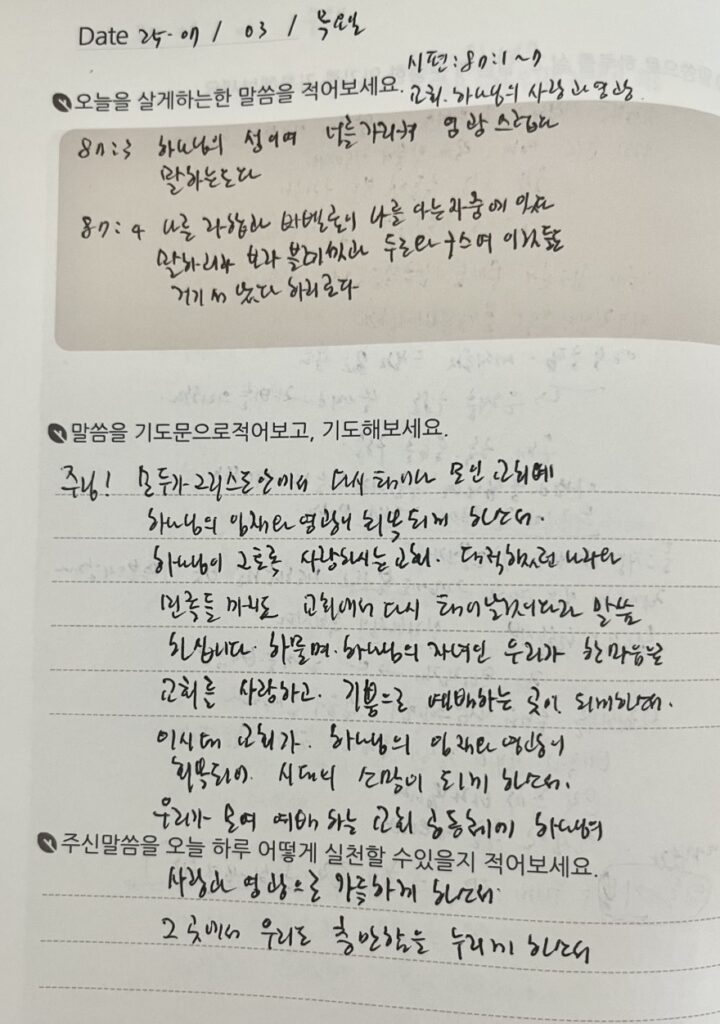 Date 25. 07 / 03 / 목요일
시편:87:1~7
오늘을 살게하는한 말씀을 적어보세요. 교회. 하나님의 사랑과 영광
87:3 하나님의 성이여 너를 가리켜 영광 스럽다
말하는도다
87:4 나를 라합과 바벨론이 나를 아는자중에 있다
말하리라 보라 블레셋과 두로와 구스여 이것들도
거기서 났다 하리로다
말씀을 기도문으로적어보고, 기도해보세요.
주님! 모두가 그리스도안에서 다시 태어나 모인 교회에
하나님의 임재와 영광이 회복되게 하소서.
하나님이 그토록 사랑하시는 교회. 대적하였던 나라와
민족들 까지도 교회에서 다시 태어날 말씀
하십니다. 하물며. 하나님의 자녀인 우리가 한마음으로
교회를 사랑하고. 기쁨으로 예배하는 곳이 되게하소서.
이시대 교회가. 하나님의 임재와 영광이
회복되어. 시대의 소망이 되게 하소서.
우리가 모여 예배 하는 교회 공동체에 하나님의
주신말씀을 오늘 하루 어떻게 실천할 수있을지 적어보세요.
사랑과 영광으로 가득하게 하소서.
그 곳에서 우리도 충만함을 누리게 하소서